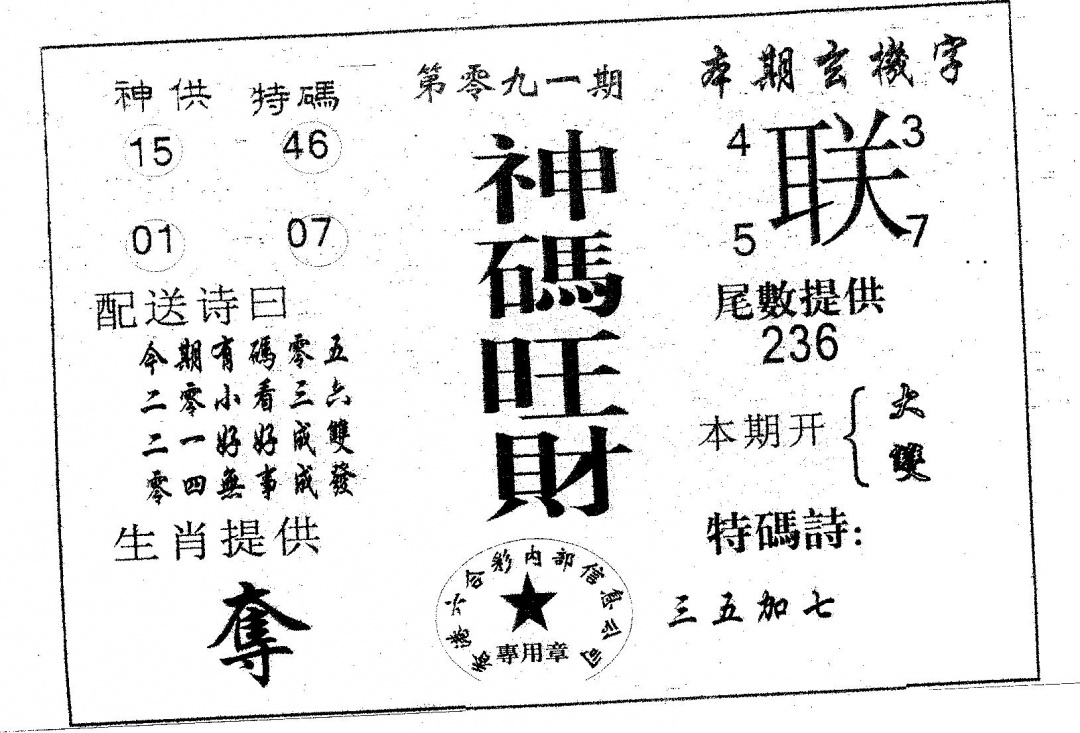 神供 特碼
15 46
01 07
配送诗曰
今期有碼零五
二零小看三六
二一好好成雙
零四無事成發
生肖提供
奪
第零九一期
神碼旺財
香港六合彩内部信息公司
專用章
本期玄機字
4 3
联
5 7
尾數提供
236
本期开{大雙
特碼詩:
三五加七